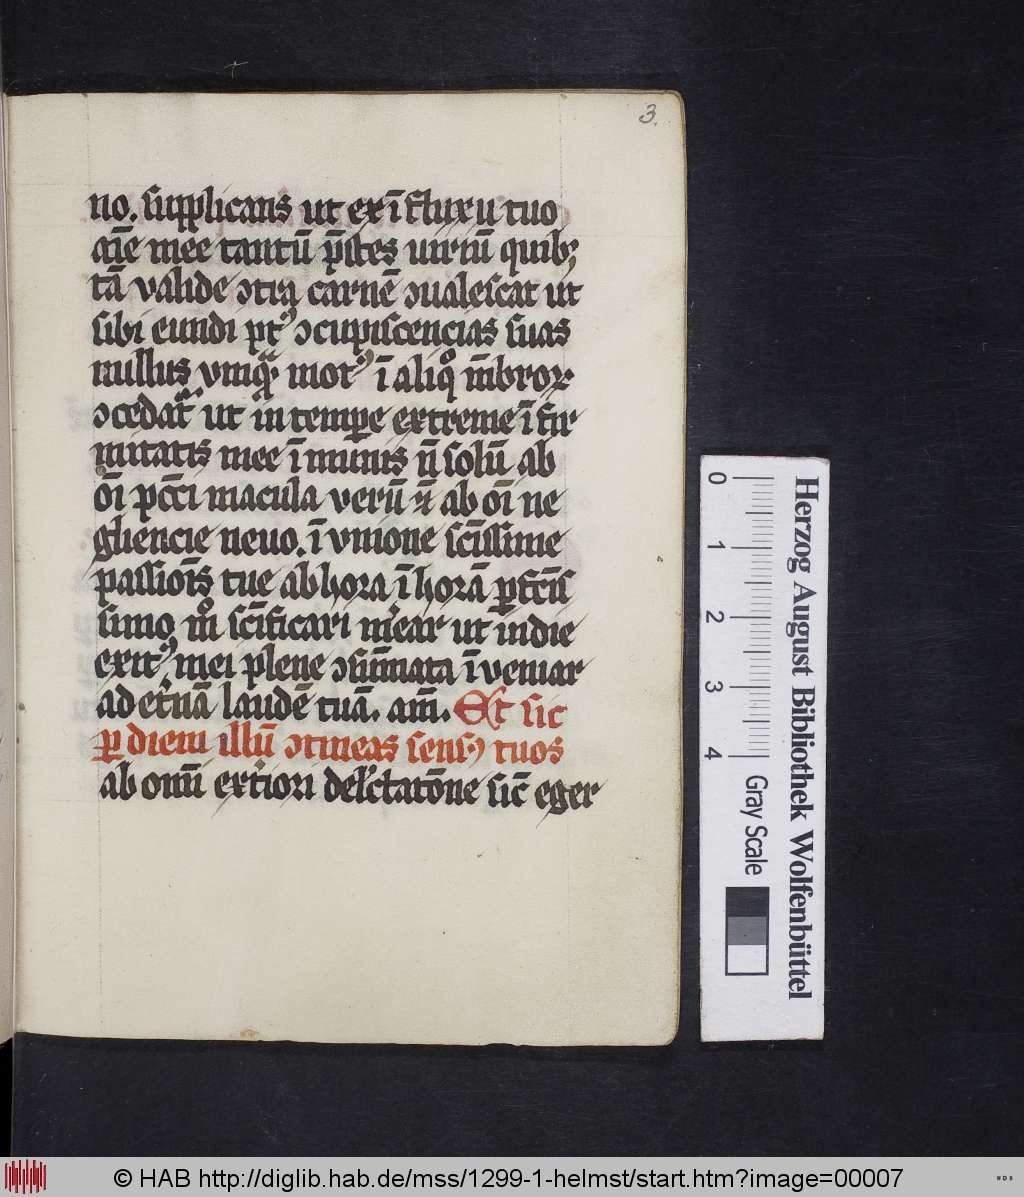 3.
no. supplicans ut ex ī fluxu tuo
aīe mee tantū p̄stes uiriū quibꝫ
tā valide ↄtra carnē ↄualescat ut
sibi eundi ptꝰ ↄcupiscencias suas
nullus vmqᷓ motꝰ ī aliqͦ m̄broꝝ
ↄcedat᷑ ut in tempe extreme ī fir
mitatis mee ī munis n̄ solū ab
oī pcc̄i macula verū ⁊ ab oī ne
gliencie neuo. ī vnione sc̄issime
passiōis tue ab hora ī horā ꝑfc̄is
simo mͦ sc̄ificari mear ut in die
exitꝰ mei plene ↄsūmata ī veniar
ad et̓nā laudē tuā. am̄. Et sic
ꝑ diem illū ↄtineas sensꝰ tuos
ab omī ext̓iori delc̄tatōne sic̄ eger
Herzog August Bibliothek Wolfenbüttel
0 1 2 3 4
Gray Scale
© HAB http://diglib.hab.de/mss/1299-1-helmst/start.htm?image=00007